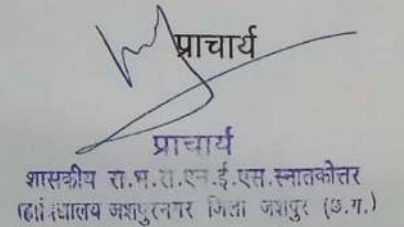 प्राचार्य
प्राचार्य
शासकीय रा.भ.रा.एन.ई.एस.स्नातकोत्तर
जशपुरनगर जिला जशपुर (छ.ग.)